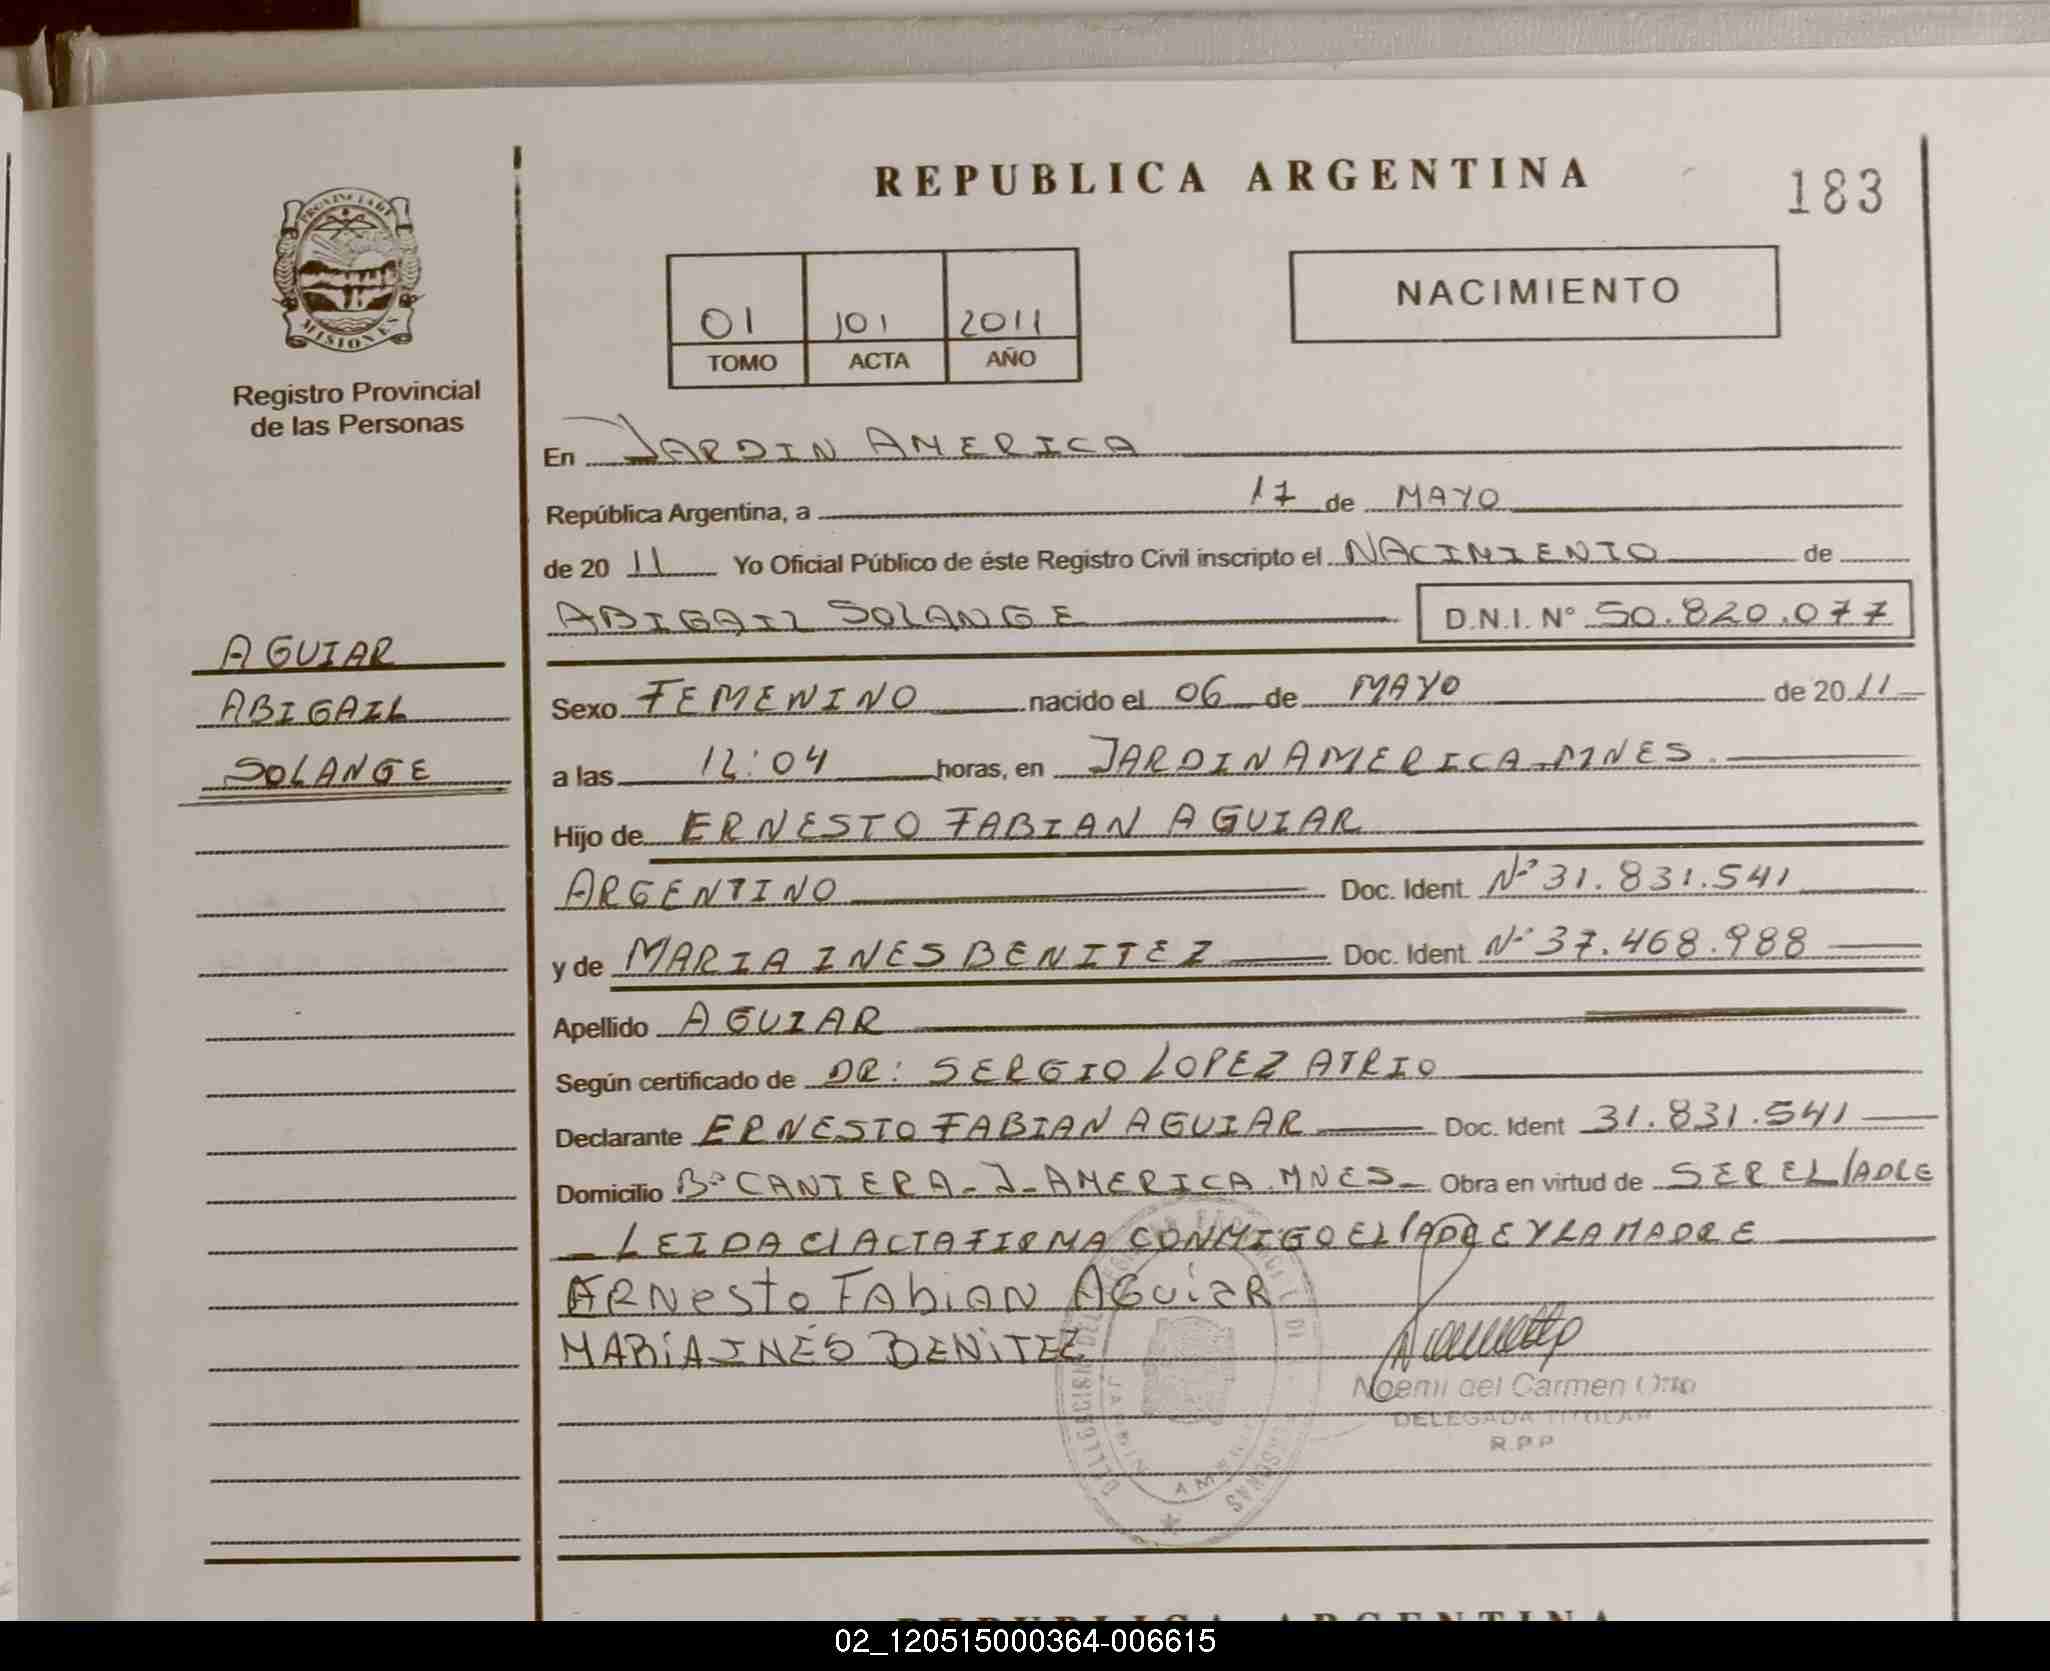 REPUBLICA ARGENTINA
183
PROVINCIA DE
MISIONES
Registro Provincial
de las Personas
01 101 2011
TOMO ACTA AÑO
NACIMIENTO
En JARDIN AMERICA
República Argentina, a 17 de MAYO
de 20 11 Yo Oficial Público de éste Registro Civil inscripto el NACIMIENTO de
ABIGAIL SOLANGE D.N.I. N° 50.820.077
AGUIAR
ABIGAIL
SOLANGE
Sexo FEMENINO nacido el 06 de MAYO de 20 11
a las 12:04 horas, en JARDIN AMERICA - MNES.
Hijo de ERNESTO FABIAN AGUIAR
ARGENTINO Doc. Ident. N° 31.831.541
y de MARIA INES BENITEZ Doc. Ident. N° 37.468.988
Apellido AGUIAR
Según certificado de DR: SERGIO LOPEZ ATRIO
Declarante ERNESTO FABIAN AGUIAR Doc. Ident 31.831.541
Domicilio B° CANTERA - J - AMERICA. MNES - Obra en virtud de SER EL PADRE
- LEIDA El ACTA FIRMA CONMIGO EL PADRE Y LA MADRE
ERNesto FAbiAN AGuiaR
MARIA INÉS BENITEZ
Noemi del Carmen
DELEGADA TITULAR
R.P.P
JARDIN AMERICA
REPUBLICA ARGENTINA
02_120515000364-006615